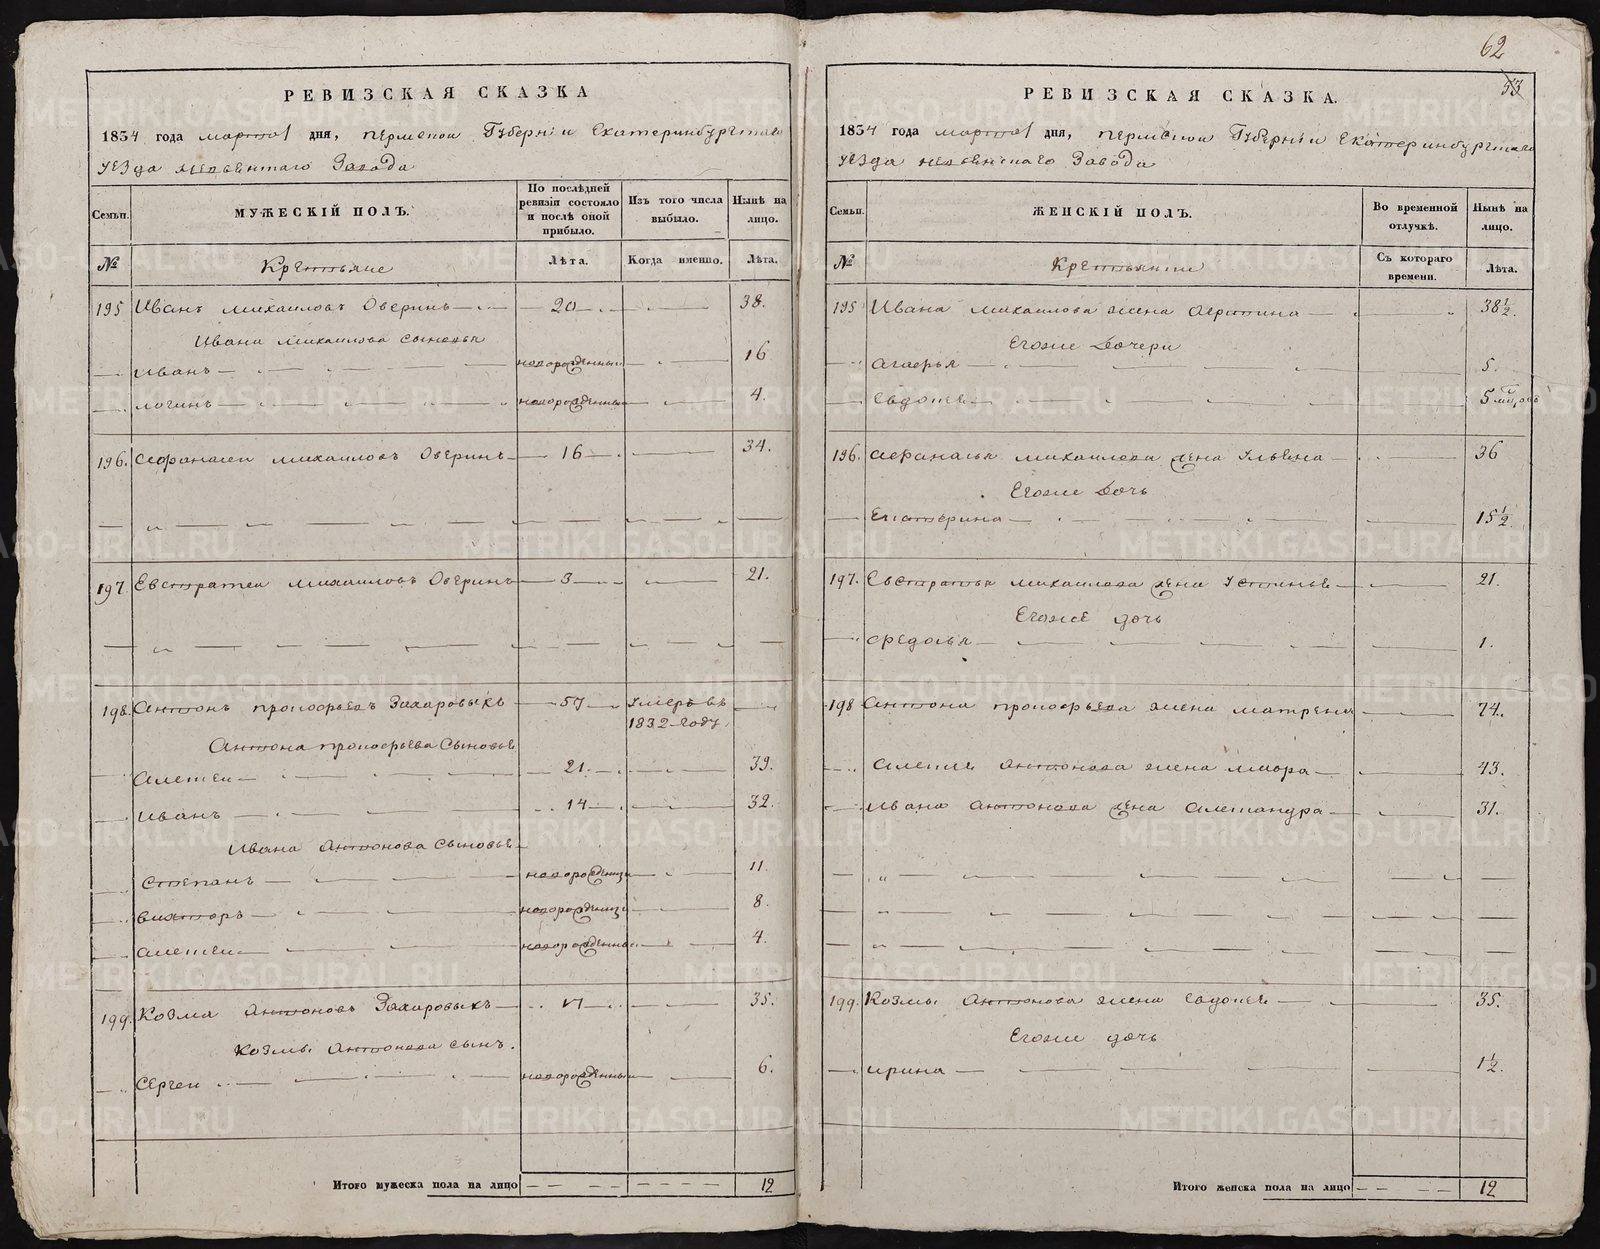 62
53
РЕВИЗСКАЯ СКАЗКА
1834 года марта 1 дня, Пермской Губернии Екатеринбургскаго
уезда невьянскаго Завода
Семьи.
МУЖЕСКІЙ ПОЛЪ.
По послѣдней ревизіи состояло и послѣ оной прибыло.
Изъ того числа выбыло.
Нынѣ на лицо.
№
Крестьяне
Лѣта.
Когда именно.
Лѣта.
195 Иванъ михаиловъ Оверинъ 20 38.
Ивана михаилова сыновья
иванъ новорожденный 16
логинъ новорожденный 4.
196. Афонасеи михаиловъ Оверинъ 16 34.
197 Евстратеи михаиловъ Оверинъ 3 21.
198. Антонъ прокофьевъ Захаровыхъ 57 Умеръ въ
1832 году
Антона прокофьева Сыновье
алексеи 21. 39.
иванъ 14 32.
ивана Антонова Сыновье
Степанъ 11.
викторъ 8.
алексеи новорожденный 4.
199. Козма антоновъ Захаровыхъ 17 35.
Козмы антонова сынъ.
Сергеи новорожденный 6.
Итого мужеска пола на лицо 12
РЕВИЗСКАЯ СКАЗКА.
1834 года марта 1 дня, пермской Губернии Екатеринбургскаго
уезда невьянскаго Завода
Семьи.
ЖЕНСКІЙ ПОЛЪ.
Во временной отлучкѣ.
Нынѣ на лицо.
№
Съ котораго времени.
Лѣта.
195 Ивана михаилова жена 38 1/2.
Егоже Дочери
Агафья 5.
Евдокея 5
196. афонасья михаилова жена Ульена 36
Егоже Дочь
Екатерина 15 1/2
197. Евстратья михаилова жена Устинье 21.
Егоже дочь
1.
198 Антона прокофьева жена матрена 74.
алексея антонова жена мавра 43.
ивана антонова жена александра 31.
199. Козмы Антонова жена Евдокея 35.
Егоже дочь
ирина 1 1/2.
Итого женска пола на лицо 12
METRIKI.GASO-URAL.RU